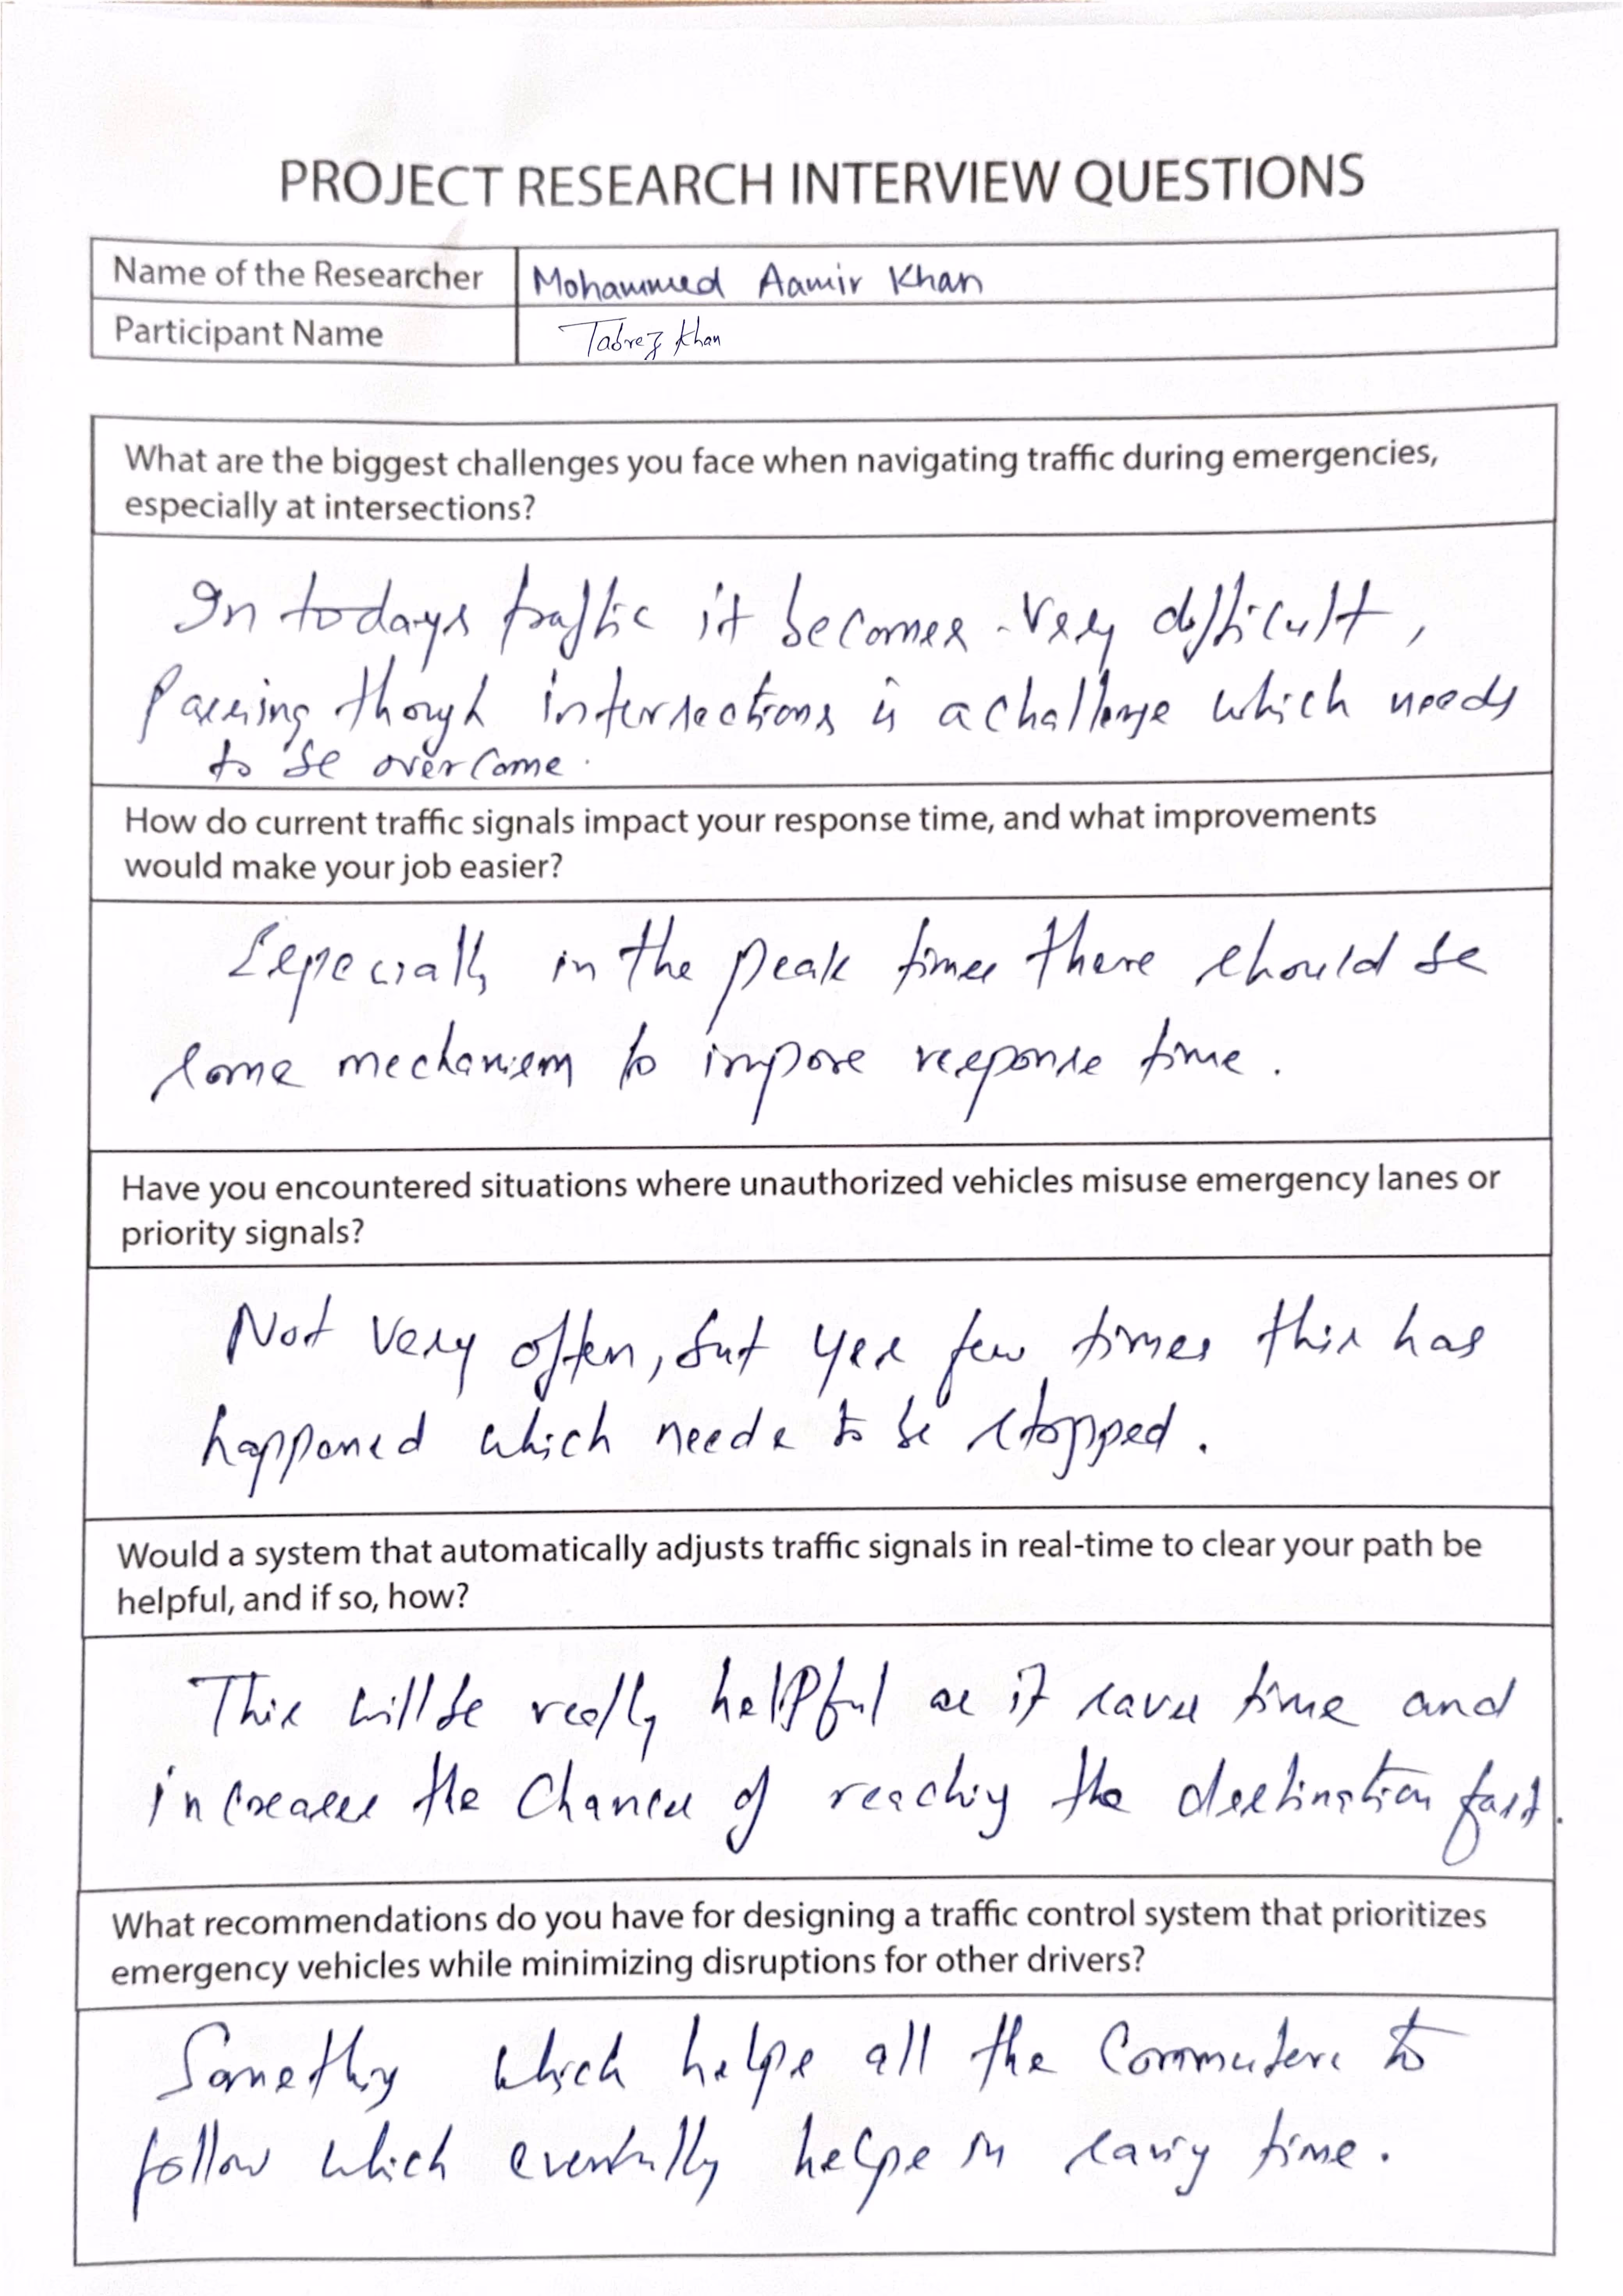 PROJECT RESEARCH INTERVIEW QUESTIONS
Name of the Researcher Mohammed Aamir Khan
Participant Name Tabrez Khan
What are the biggest challenges you face when navigating traffic during emergencies,
especially at intersections?
In todays traffic it becomes very difficult,
Passing though intersections is a challenge which needs
to be overcome.
How do current traffic signals impact your response time, and what improvements
would make your job easier?
Especially in the peak times there should be
some mechanism to impore response time.
Have you encountered situations where unauthorized vehicles misuse emergency lanes or
priority signals?
Not very often, but yes few times this has
happened which needs to be stopped.
Would a system that automatically adjusts traffic signals in real-time to clear your path be
helpful, and if so, how?
This will be really helpful as it saves time and
increases the chances of reaching the destination fast.
What recommendations do you have for designing a traffic control system that prioritizes
emergency vehicles while minimizing disruptions for other drivers?
Something which helps all the Commuters to
follow which eventually helps in saving time.